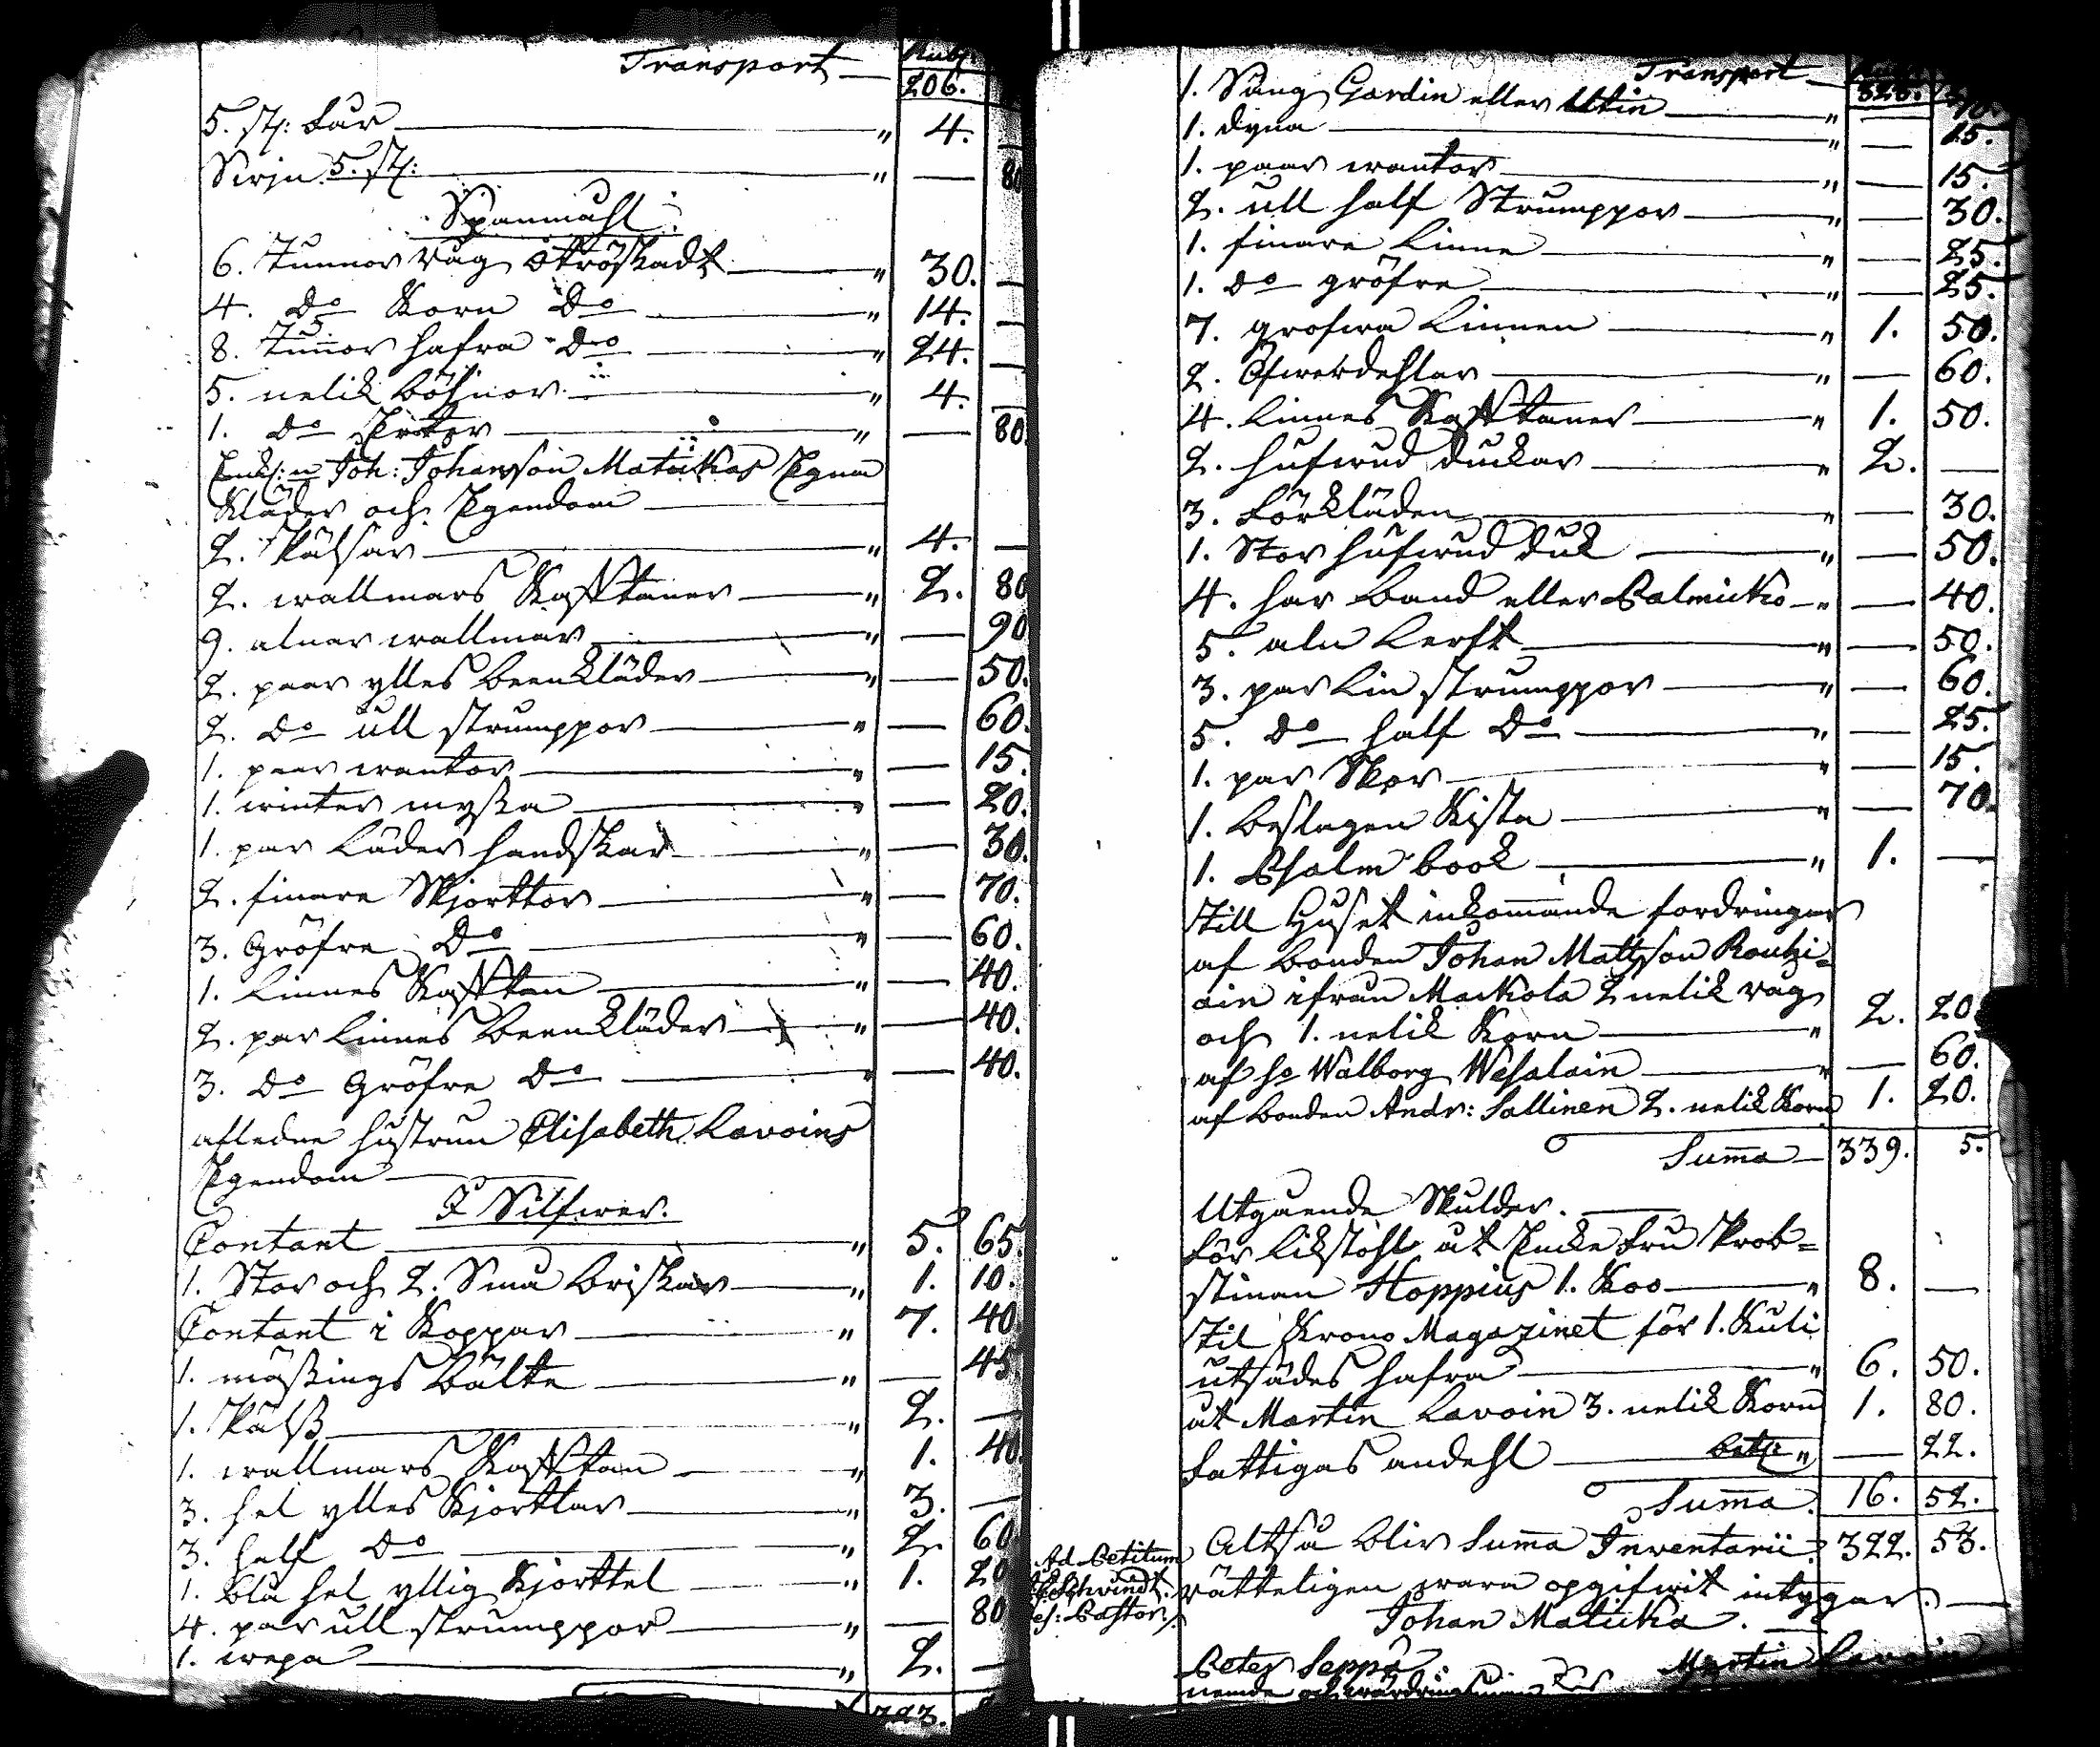 Transport — Rubl.
206.
5. st: får — " 4. —
5. st: — " — 80
Spanmåhl.
6. Tunnor råg otröskadt — " 30. —
4. do Korn do — " 14. —
8. Tunnor hafra do — " 24. —
5. nelik böhnor — " 4. —
1. do ärter — " — 80.
Joh: Johansson Matukas Egna
Kläder och Egendom —
2. Pälsar — " 4. —
2. wallmars Kafftaner — " 2. 80
9. alnar wallmar — " — 90
2. paar ylles beenkläder — " — 50.
2. do ull strumppor — " — 60.
1. paar wantar — " — 15.
1. winter mössa — " — 20.
1. par Läder handskar — " — 30.
2. finare Skjorttor — " — 70.
3. Gröfre do — " — 60.
1. Linnes Kafftan — " — 40.
2. par Linnes beenkläder — " — 40.
3. do Gröfre do — " — 40.
afledne hustrun Elisabeth Lavoins
Egendom —
I Silfwer.
Contant — " 5. 65.
1. Stor och 2. Små briskar — " 1. 10.
Contant i Koppar — " 7. 40
1. mässings bälte — " — 45
1. Päls — " 2. —
1. wallmars Kafftan — " 1. 40.
3. hel ylles Kjorttlar — " 3. —
3. half do — " 2. 60
1. blå hel yllig Kjorttel — " 1. 20
4. par ull strumppor — " — 80
1. wepa — " 2. —
323.
Transport — 323.
1. Säng Gardin eller Utin — " —
1. dyna — " — 15.
1. paar wantar — " — 15.
2. ull half Strumppor — " — 30.
1. finare Linne — " — 25.
1. do gröfre — " — 25.
7. grofwa Linnen — " 1. 50.
2. Öfwerdehlar — " — 60.
4. Linnes Kafftaner — " 1. 50.
2. hufwud duckar — " 2. —
3. Förkläden — " — 30.
1. Stor hufwud duk — " — 50.
4. har band eller Palmicko — " — 40.
5. aln Lerft — " — 50.
3. par Lin strumppor — " — 60.
5. do half do — " — 25.
1. par Skor — " — 15.
1. beslagen Kista — " — 70.
1. Psalm book — " 1. —
till Huset inkommande fordringar
af bonden Johan Mattson Rouhi=
ain ifrån Mackola 2 nelik råg
och 1. nelik Korn — " 2. 20.
af ho Walborg Wesalain — " — 60.
af bonden Andr: Sallinen 2. nelik Korn 1. 20.
Summa — 339. 5.
Utgående Skulder. —
för Likstohl åt Encke fru Prob=
stinan Hoppius 1. Koo — " 8. —
til Krono Magazinet för 1. Kuli
utsädes hafra — " 6. 50.
åt Martin Lavoin 3. nelik Korn 1. 80.
Fattigas andehl — bet: " — 22.
Summa. 16. 52.
Altså blir Summa Inventarii: 322. 53.
Ad Petitum
Schvindt.
Pastor.
rätteligen wara opgifwit intygar. —
Johan Matucka.
Peter Seppä. Martin Lavoin